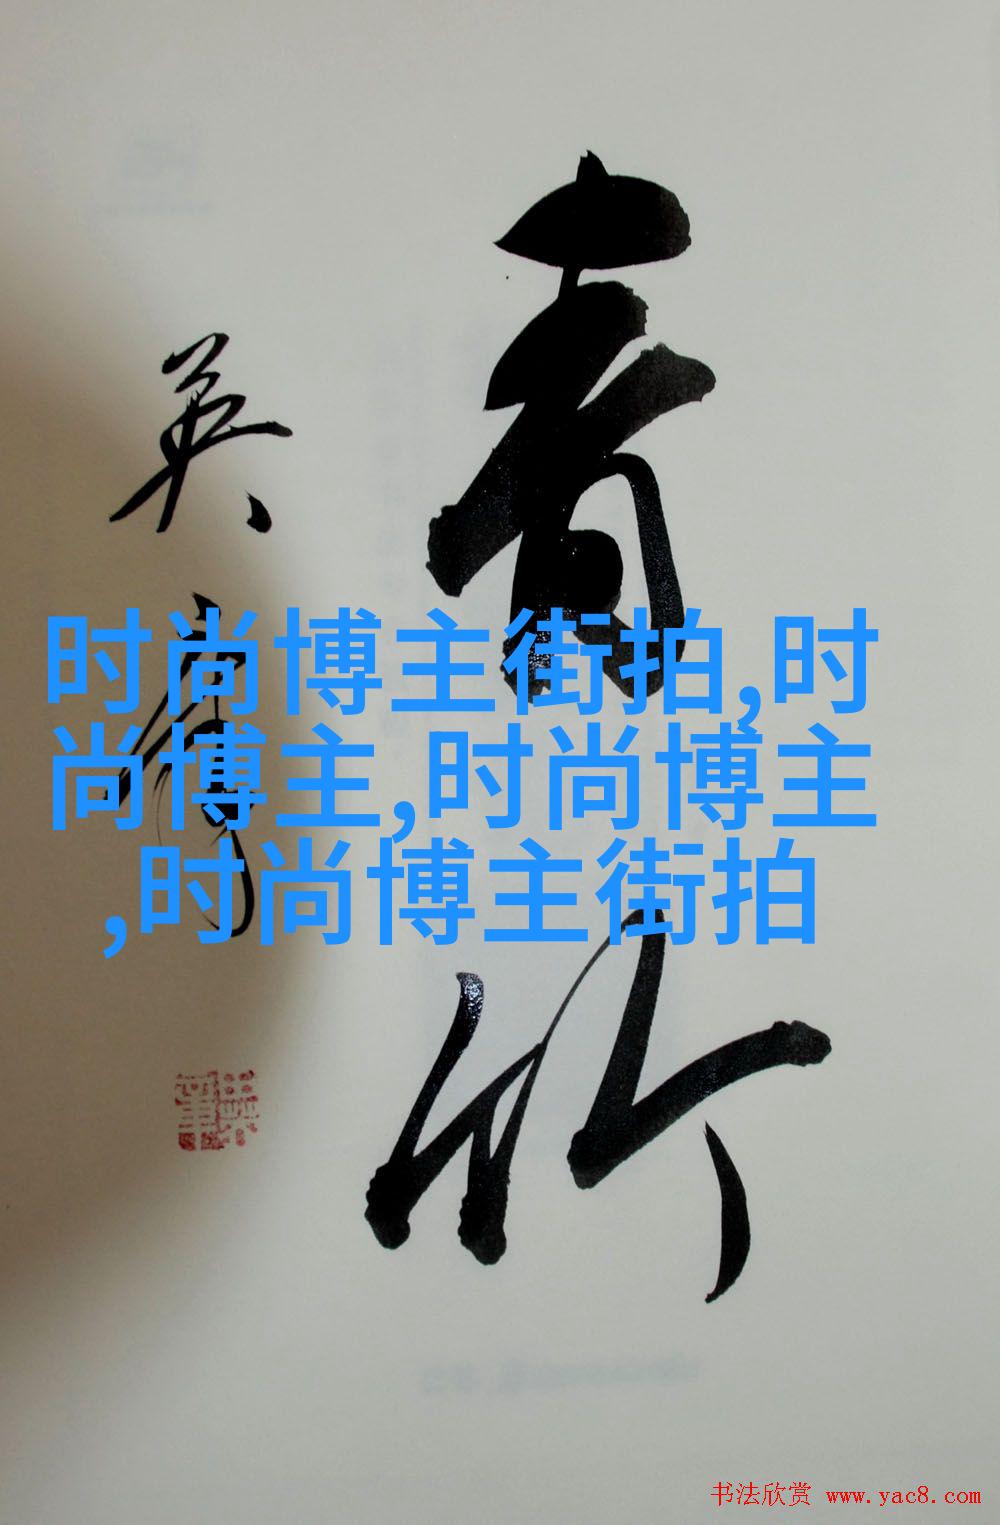 青竹
英
时尚博主街拍,时
尚博主,时尚博主
,时尚博主街拍
书法欣赏 www.yac8.com